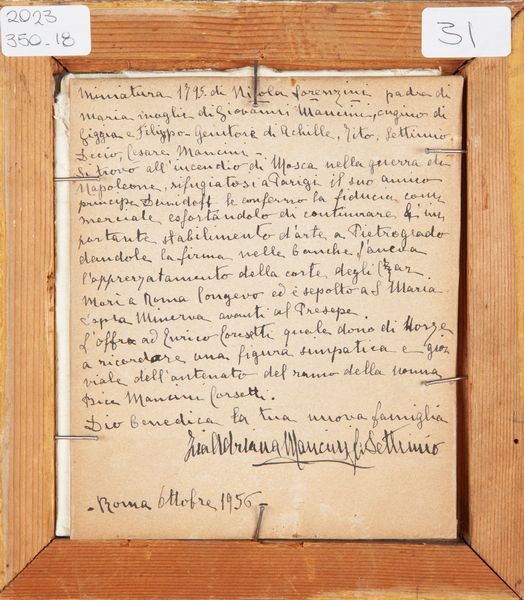 2023
350-18
31
Miniatura 1795 di Nicola Lorenzini padre di
Maria moglie di Giovanni Mancini, cugino di
Giggia e Filippo - Genitore di Achille, Tito, Settimio,
Decio, Cesare Mancini -
Si trovò all'incendio di Mosca nella guerra di
Napoleone, rifugiatosi a Parigi il suo amico
principe Davidoff le conferrò la fiducia com
merciale esfortándolo di continuare l' im
portante stabilimento d'arte a Pietrogrado
dandole la firma nelle banche. Aveva
l'apprezzatamento della corte degli Czar.
Morì a Roma longevo ed è sepolto a S. Maria
sopra Minerva avanti al Presepe.
L'offro ad Enrico Corsetti quale dono di Nozze
a ricordare una figura simpatica e gio
viale dell'antenato del ramo della nonna
Bice Mancini Corsetti.
Dio benedica la tua nuova famiglia
Zia Adriana Mancini Settimio
- Roma Ottobre 1956 -